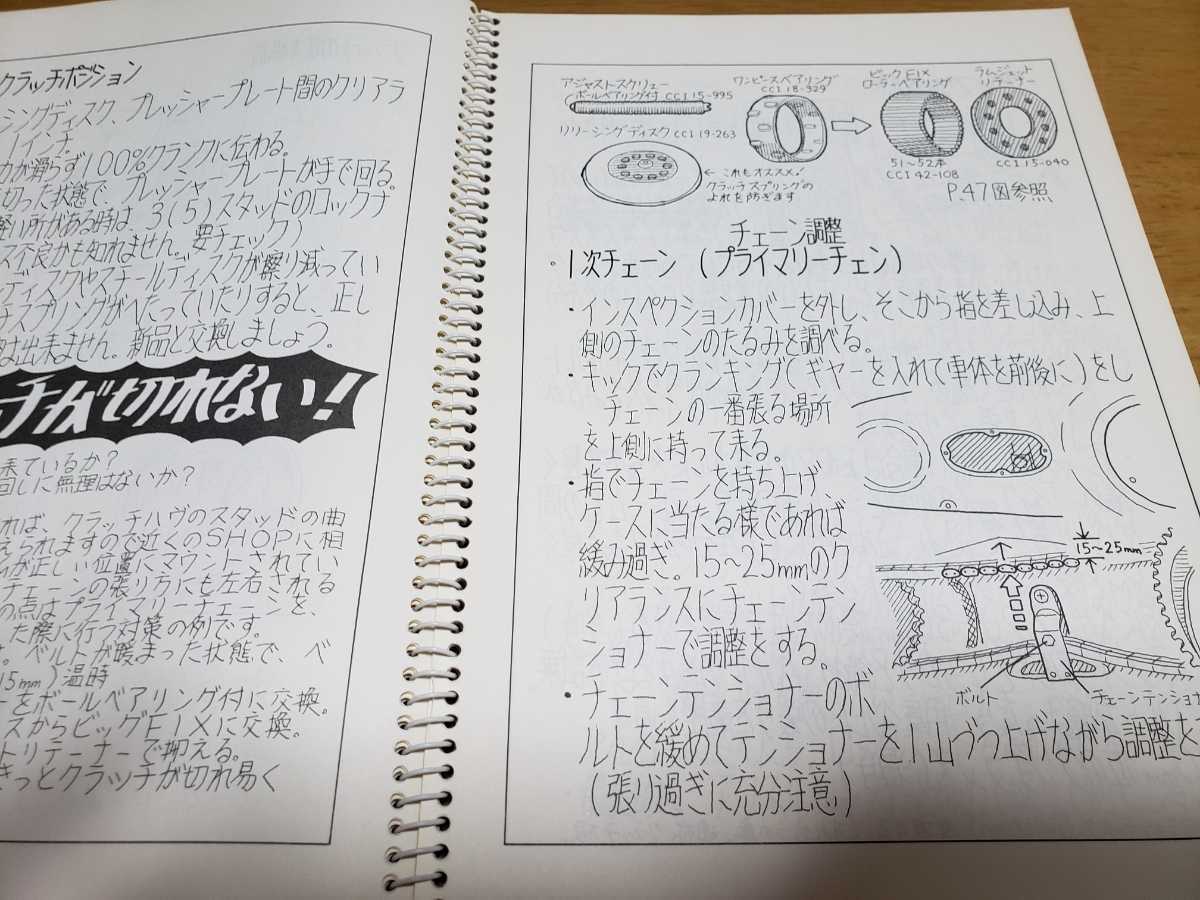 クラッチポジション
シングディスク、プレッシャープレート間のクリアラ
インチ
カが滑らず100%クランクに伝わる。
切った状態で、プレッシャープレートが手で回る。
軽い所がある時は 3(5)スタッドのロックナ
ス不良かも知れません。要チェック)
ディスクやスチールディスクが擦り減ってい
チスプリングがへたっていたりすると、正し
は出来ません。新品と交換しましょう。
チが切れない!
来ているか?
回しに無理はないか?
れば、クラッチハヴのスタッドの曲
えられますので近くのSHOPに相
が正しい位置にマウントされてい
チェーンの張り方にも左右される
の点はプライマリーチェーンを、
した際に行う対策の例です。
。ベルトが暖まった状態で、ベ
15mm)温時
ーをボールベアリング付に交換。
スからビッグFIXに交換。
トリテーナーで抑える。
きっとクラッチが切れ易く
アジャストスクリュー
ボールベアリング付 CCI 15-995
ワンピースベアリング
CCI 18-329
ビック FIX
ローラーベアリング
ラムジェット
リテーナー
リリーシングディスク CCI 19-263
51~52本
CCI 42-108
CCI 15-040
←これもオススメ!
クラッチスプリングの
よれを防ぎます
P.47図参照
チェーン調整
。1次チェーン (プライマリーチェン)
・インスペクションカバーを外し、そこから指を差し込み、上
側のチェーンのたるみを調べる。
・キックでクランキング(ギヤーを入れて車体を前後に)をし
チェーンの一番張る場所
を上側に持って来る。
・指でチェーンを持ち上げ、
ケースに当たる様であれば
緩み過ぎ。15~25mmのク
リアランスにチェーンテン
ショナーで調整をする。
15~25mm
ボルト
チェーンテンショナ
・チェーンテンショナーのボ
ルトを緩めてテンショナーを1山づつ上げながら調整を
(張り過ぎに充分注意)